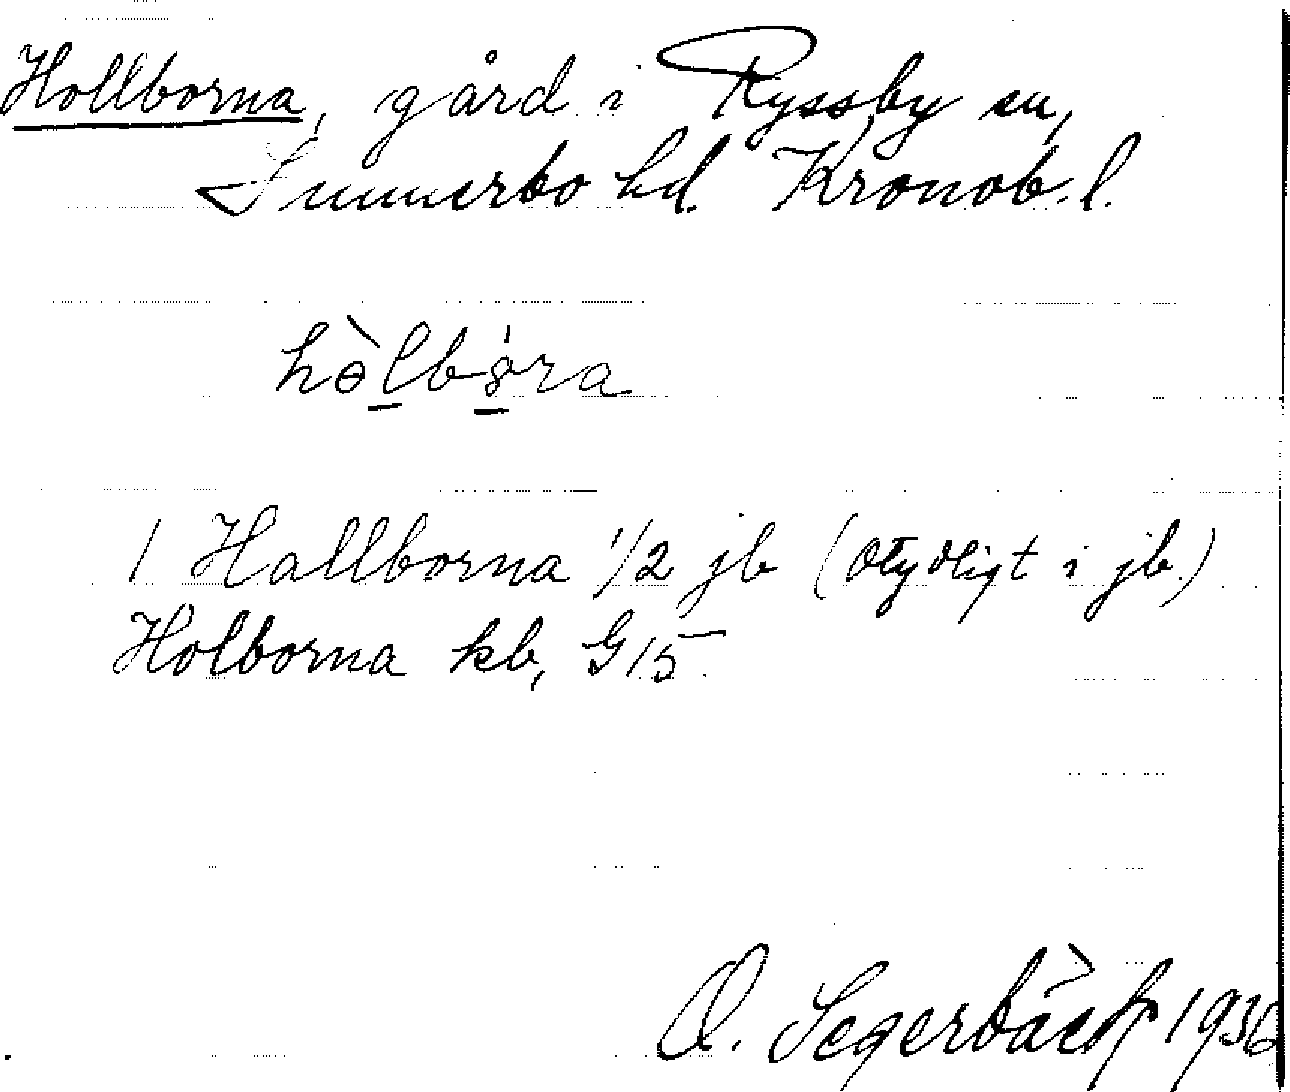 Hollborna, gård i Ryssby sn,
Sunnerbo hd. Kronob. l.
hòlbóra
1 Hallborna 1/2 jb (otydligt i jb.)
Holborna kb, G15
O. Segerbäck 1936